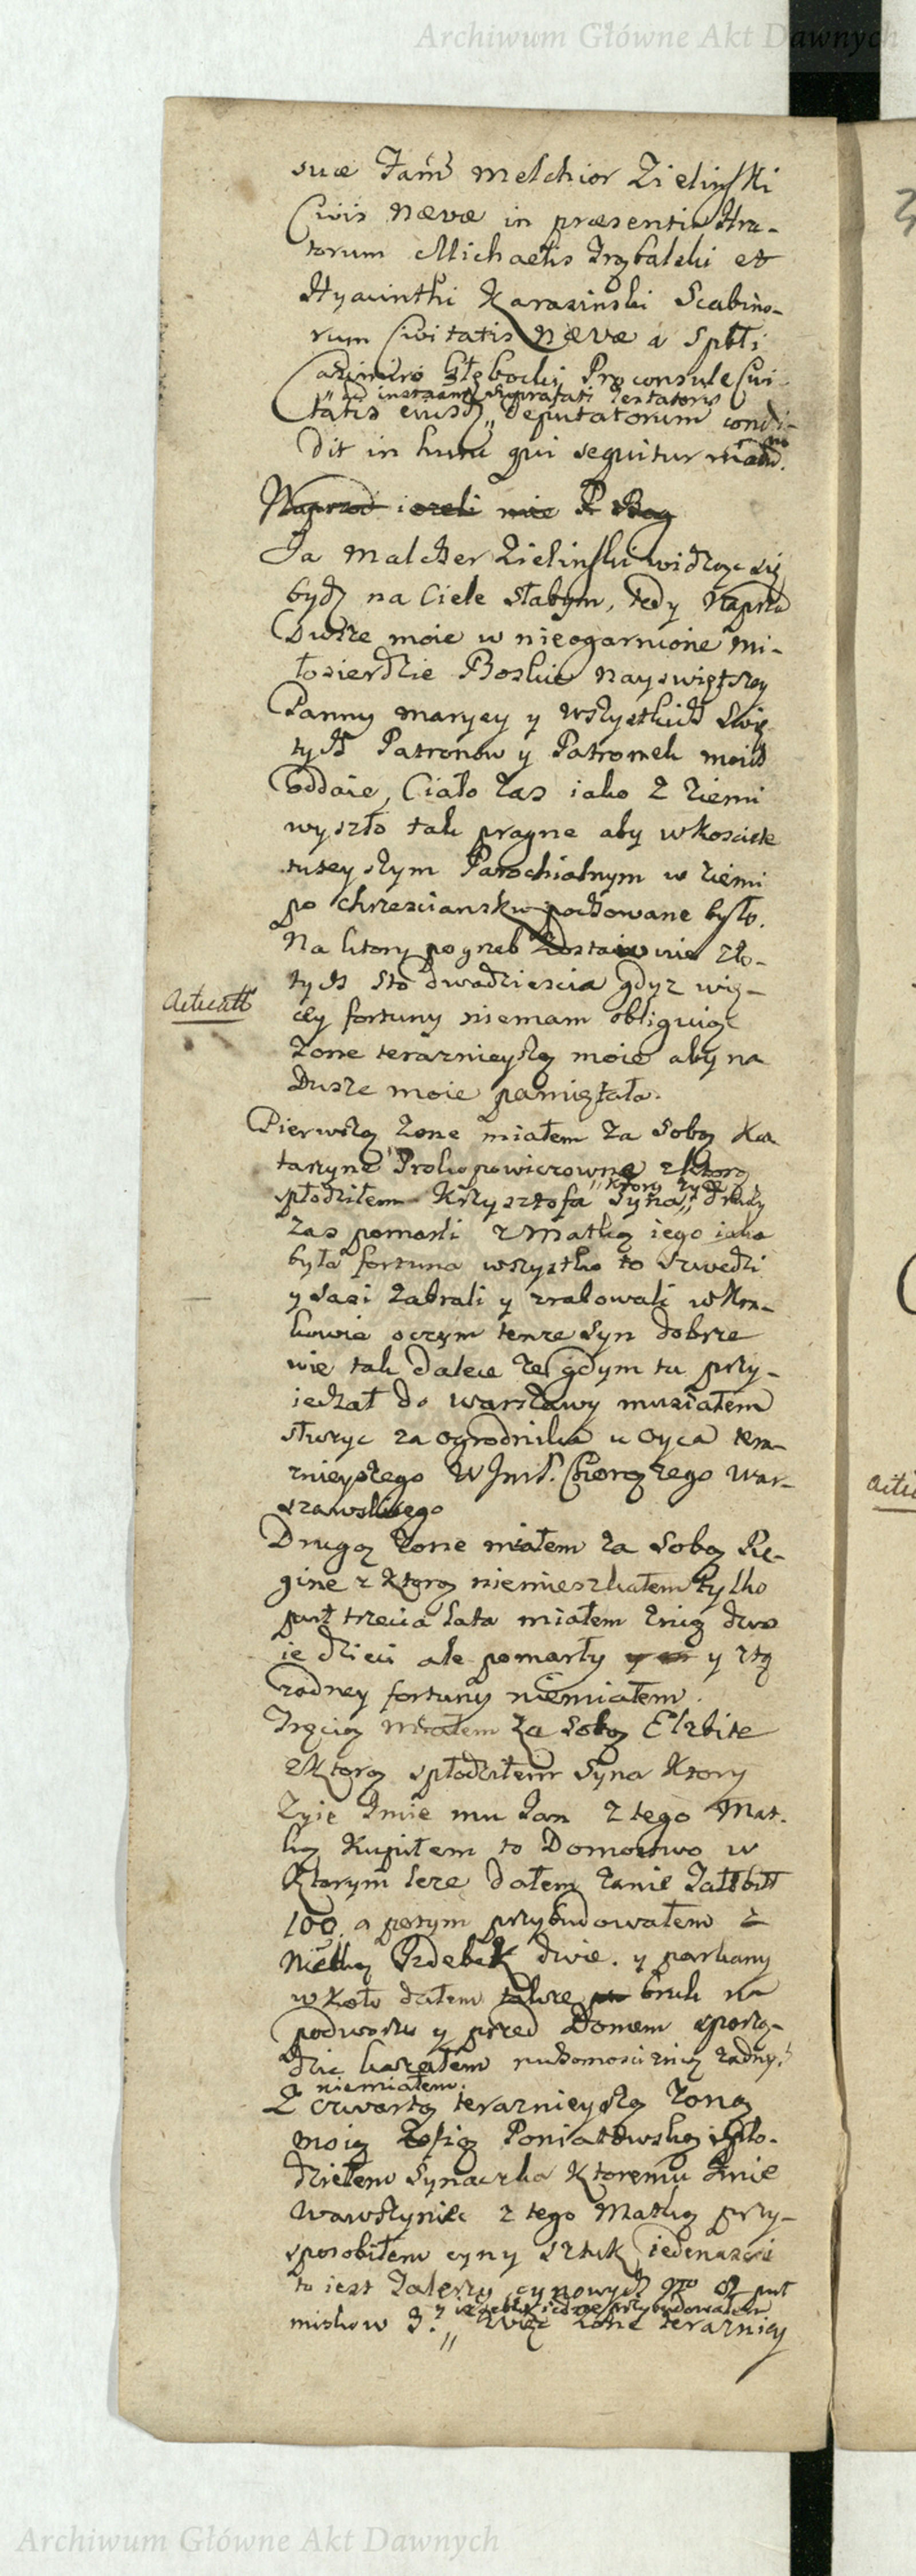 Archiwum Główne Akt Dawnych
suæ Fam̃ Melchior Zielinski
Civis Nævæ in præsentia Hra-
torum Michaelis Trybalski et
Hyacinthi Karasinski Scabino-
rum Civitatis Nævæ a Spbłi
Casimiro Głębocki Proconsule Civi-
ad instantiam suprafati Testatoris
tatis eiusd. deputatorum condi-
dit in hunc qui sequitur modũ.
Naprzod iezeli mie P. Bog
Ja Malcher Zielinski widząc się
bydz na Ciele słabym, tedy Naprzod
Dusze moie w nieogarnione Mi-
łosierdzie Boskie Nayswiętszey
Panny Maryey y wszystkich Swię
tych Patronow y Patronek moich
oddaie, Ciało zas iako z ziemi
wyszło tak pragne aby w Kosciele
tuteyszym Parochialnym w ziemi
po chrzesciansku pochowane było.
Na ktory pogreb zostawuie zło-
tych sto dwadziescia gdyz wię-
Acticatt
cey fortuny niemam obliguiąc
zone terazniejszą moie aby na
Dusze moie pamiętała.
Pierwszą zone miałem za sobą Ka
tarzyne Prokopowiczowne z ktorą
ktory zyie
spłodziłem Krzysztofa Syna, drudzy
zas pomarli z Matką iego iaka
była fortuna wszystko to Szwedzi
y Sasi zabrali y zrabowali w Kra-
kowie oczym tenze Syn dobrze
wie tak dalece ze gdym tu przy-
iechał do Warszawy musiałem
słuzyc za ogrodnika u Oyca tera-
znieyszego W Jmć. Chorązego War-
szawskiego
Drugą zone miałem za sobą Re-
gine z ktorą niemieszkałem tylko
puł trzecia lata miałem znią dwo
ie dzieci ale pomarły y y ztą
zadney fortuny niemiałem.
Trzecią miałem za sobą Elzbite
z ktorą spłodziłem Syna ktory
zyie Imie mu Jan z tego Mat-
ką Kupiłem to Domostwo w
ktorym leze dałem zanie
100. a potym przybudowałem z
Nietką Izdebek dwie. y parkany
wkoło dałem takze bruk na
podworzu y przed Domem sporzą-
dzic kazałem ruchomosci znią zadney
niemiałem.
Z czwartą terazniejszą zoną
moią Zofią Poniatowską spło-
dziłem Synaczka ktoremu Imie
Wawrzyniec z tego Matką przy-
sposobiłem cyny sztuk iedenascie
to iest Talerzy cynowych No 8 puł
y izdebke iedne przybudowałem
miskow 3. Zwięc zone terazniey
Archiwum Główne Akt Dawnych